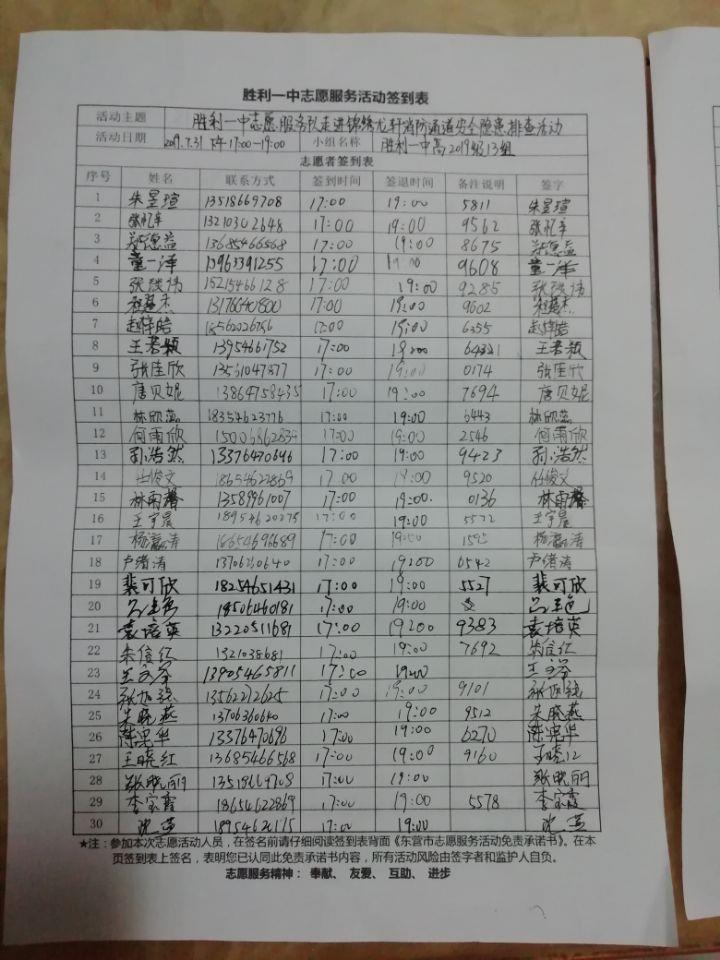 胜利一中志愿服务活动签到表
活动主题 胜利一中志愿服务队走进锦绣龙轩消防通道安全隐患排查活动
活动日期 2019.7.31 下午17:00-19:00 小组名称 胜利一中高2019级13组
志愿者签到表
序号 姓名 联系方式 签到时间 签退时间 备注说明 签字
1 朱昱瑄 13518669708 17:00 19:00 5811 朱昱瑄
2 13210302648 17:00 19:00 9562
3 郭德益 13685466568 17:00 19:00 8675 郭德益
4 董一泽 13963391255 17:00 19:00 9608 董一泽
5 15215466128 17:00 19:00 9285
6 13176640800 17:00 19:00 9602
7 17:00 19:00 6355
8 王若颖 13954661752 17:00 19:00 王若颖
9 张佳欣 17:00 19:00 0174 张佳欣
10 唐贝妮 13864758435 17:00 19:00 7694 唐贝妮
11 林欣蕊 18354623776 17:00 19:00 6443 林欣蕊
12 何雨欣 17:00 19:00 2546 何雨欣
13 孙浩然 13376470696 17:00 19:00 9423 孙浩然
14 18654622869 17:00 19:00 9520
15 林雨馨 13589961007 17:00 19:00 0136 林雨馨
16 王宇晨 17:00 19:00 5572 王宇晨
17 18654696689 17:00 19:00
18 卢渚涛 13706360640 17:00 19:00 6542 卢渚涛
19 裴可欣 18254651431 17:00 19:00 5527 裴可欣
20 18506460181 17:00 19:00
21 袁培英 13220511681 17:00 19:00 9383 袁培英
22 朱信红 1321038681 17:00 19:00 7692 朱信红
23 13905465811 17:00 19:00
24 张旭强 13562212625 17:00 19:00 9101 张旭强
25 朱晓燕 13706360640 17:00 19:00 9512 朱晓燕
26 陈思华 13376470696 17:00 19:00 6270 陈思华
27 王晓红 13685466568 17:00 19:00 9160 王晓红
28 张晓丽 13518669708 17:00 19:00 张晓丽
29 李家霞 18654622869 17:00 19:00 5578 李家霞
30 沈英 17:00 19:00 沈英
★注：参加本次志愿活动人员，在签名前请仔细阅读签到表背面《东营市志愿服务活动免责承诺书》。在本
页签到表上签名，表明您已认同此免责承诺书内容，所有活动风险由签字者和监护人自负。
志愿服务精神： 奉献、 友爱、 互助、 进步